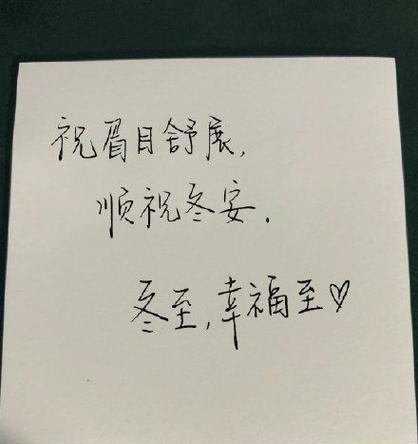 祝眉目舒展,
顺祝冬安.
冬至,幸福至♡